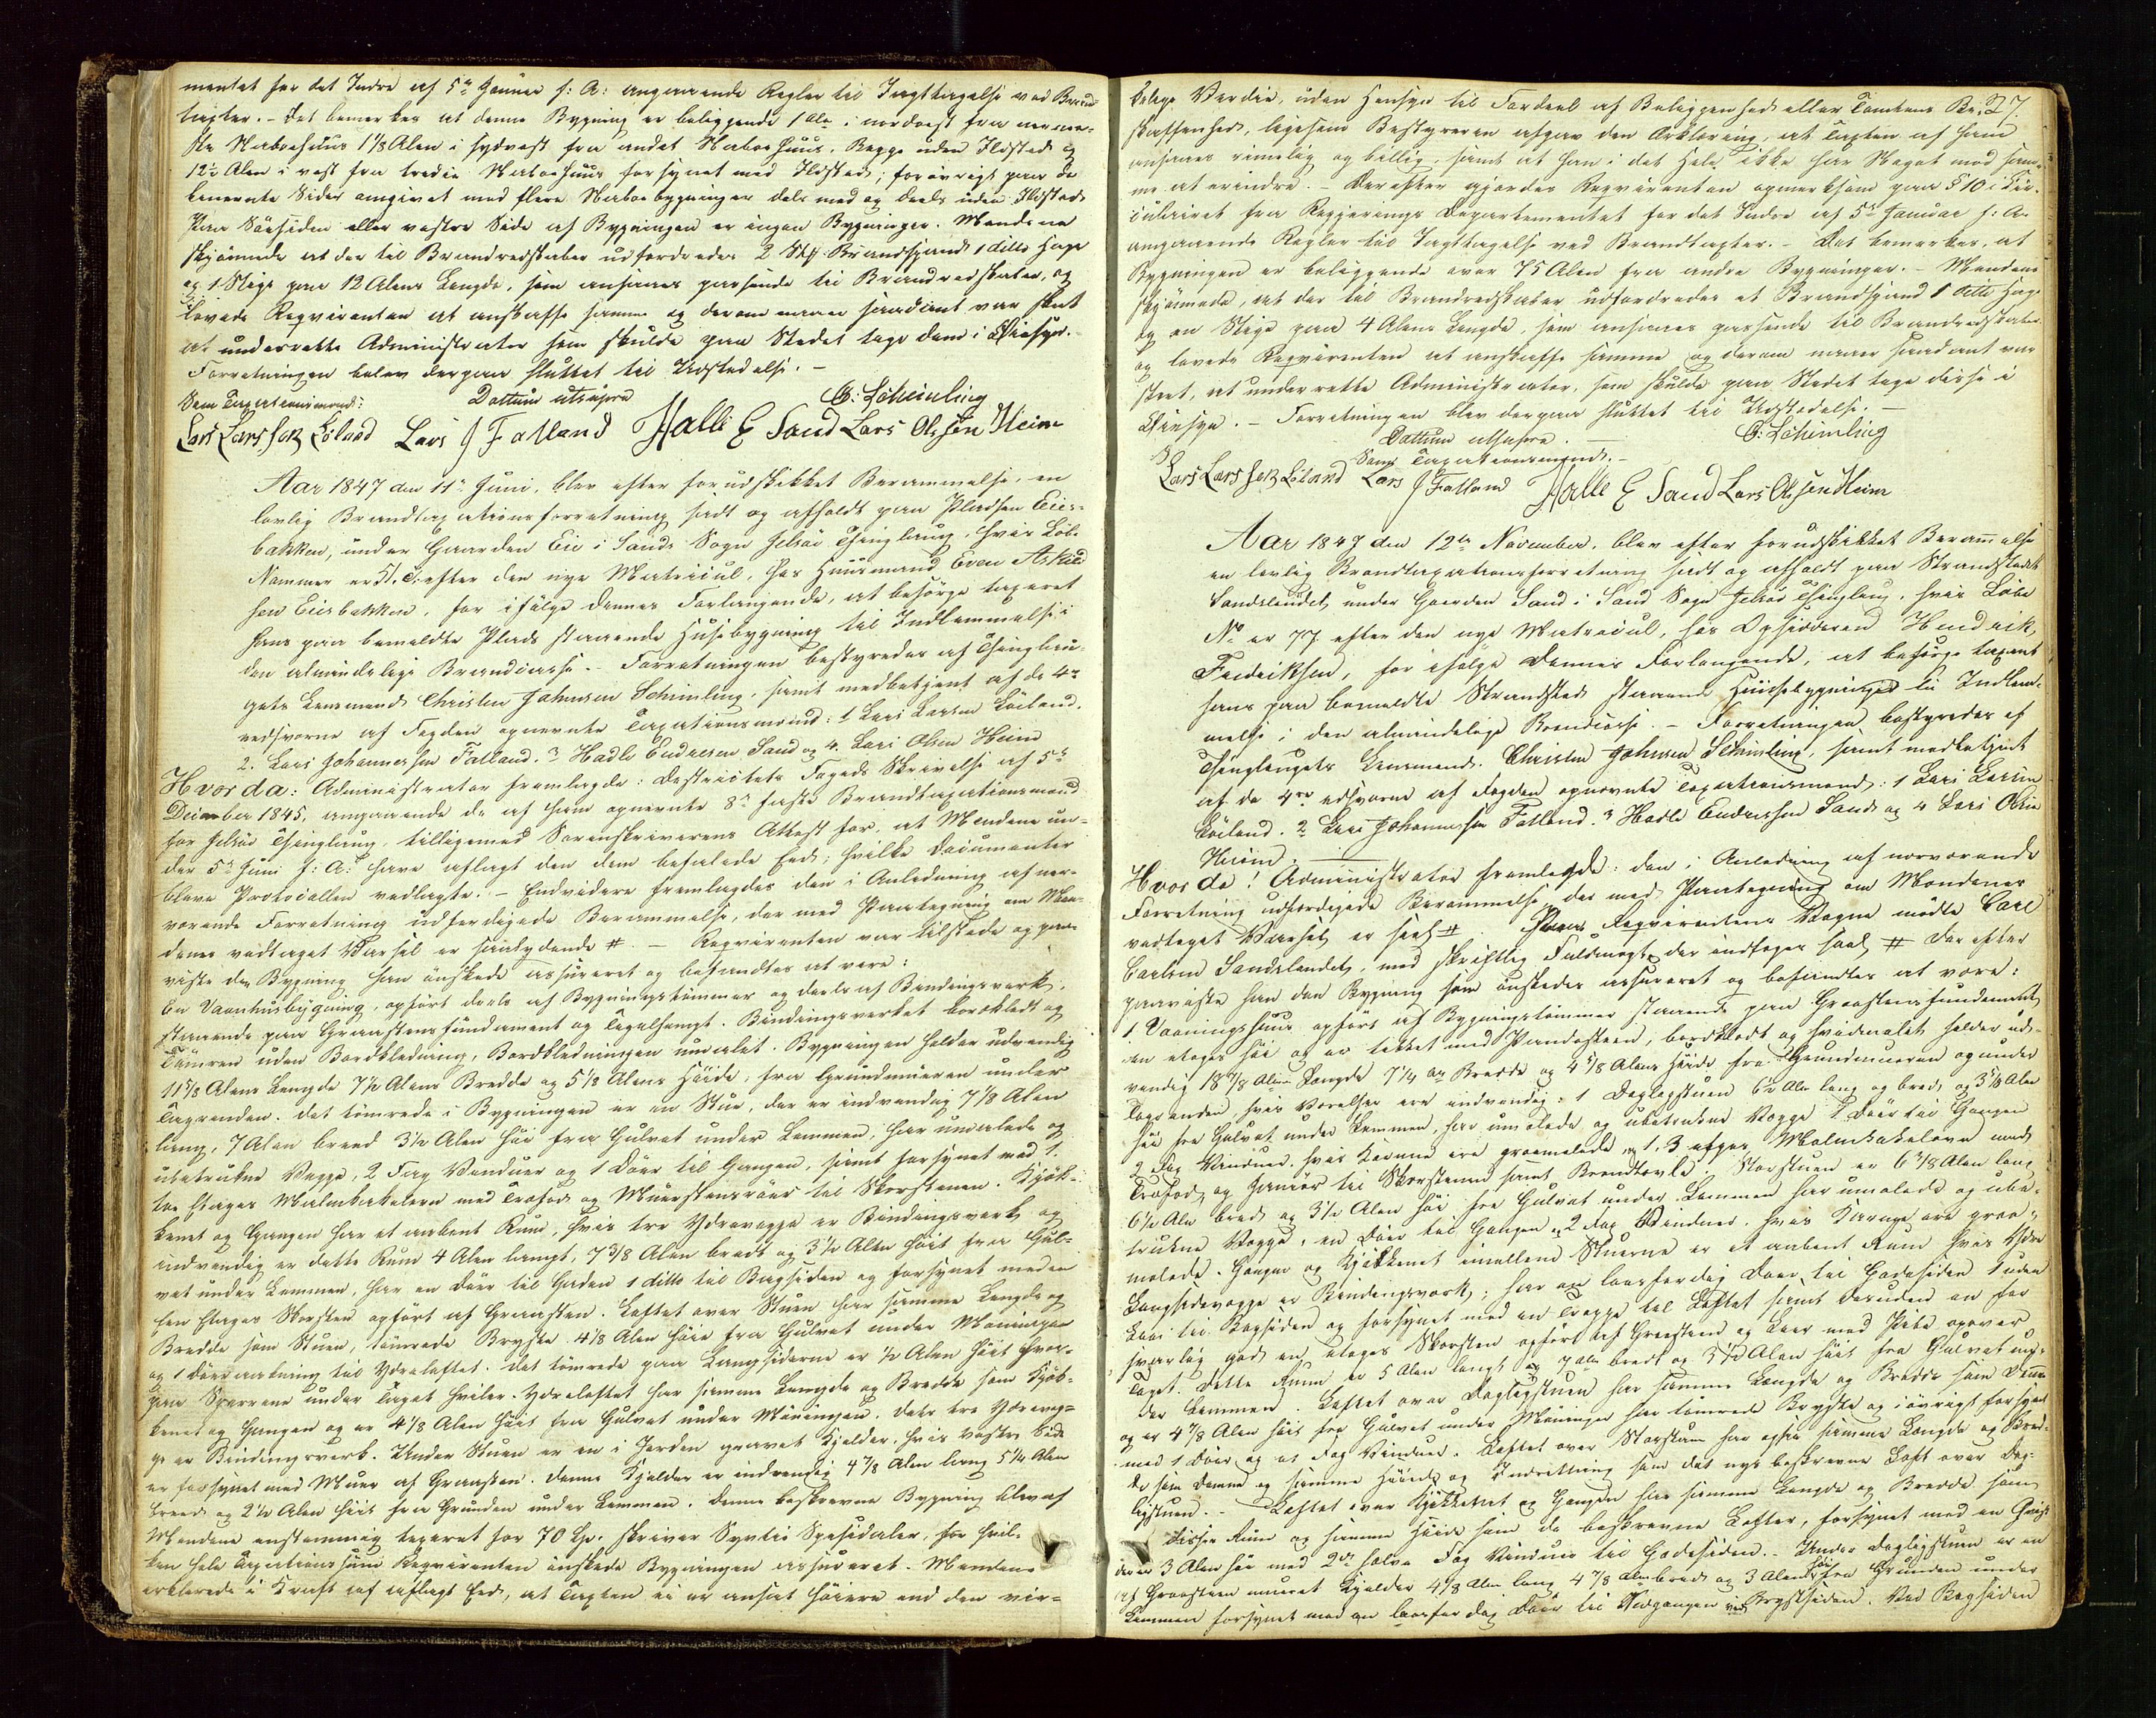 mentet for det Indre af 5te Januar f: A: angaaende Regler til Iagttagelse ved Brand-
taxter. - Det bemerkes at denne Bygning er beliggende 1 Alen i nordvest fra nerme-
ste Naboehuus 1 1/8 Alen i sydvest fra andet Naboehuus, Begge uden Ildsted og
12 1/2 Alen i vest fra tredie Naboehuus forsynet med Ildsted; forøvrigt paa de
benevnte Sider omgivet med flere Naboebygninger dels med og deels uden Ildsted
Paa Søesiden eller vestre Side af Bygningen er ingen Bygninger. Mendene
skjønnede at der til Brandredskaber udfordredes 2 Stk Brandspand 1 ditto Hage
og 1 Stige paa 12 Alens Længde, som ansaaes passende til Brandredskaber, og
lovede Reqvirenten at anskaffe samme og derom naar saadant var skeet
at underrette Administrator som skulde paa Stedet tage dem i Øiesyn.
Forretningen blev derpaa sluttet til Udstedelse. -
Datum utsupra
C: Scheimling
Som Taxationsmænd:
Lars Larssen Løland Lars J Fatland Halle E Sand Lars Olssen Heim
Aar 1847 den 11te Juni, blev efter forudskikket Berammelse, en
lovlig Brandtaxationsforretning sadt og afholdt paa Pladsen Eies-
bakken, under Gaarden Eie i Sands Sogn Jelsøe Thinglaug, hvis Løbe
Nummer er 51. C. efter den nye Matricul, hos Huusmand Even Askild
sen Eiesbakken, for ifølge dennes Forlangende, at besørge taxeret
hans paa bemeldte Plads staaende Husebygning til Indlemmelse i
den almindelige Brandcasse. - Forretningen bestyredes af Thinglau-
gets Lensmand Christen Johnsen Scheimling, samt medbetjent af de 4re
eedsvorne af Fogden opnevnte Taxationsmænd: 1 Lars Larsen Løiland,
2. Lars Johannesen Fatland. 3 Hadle Endresen Sand og 4. Lars Olsen Heim
Hvor da: Administrator fremlagde: Destrictets Fogeds Skrivelse af 5te
December 1845, angaaende de af ham opnevnte 8te faste Brandtaxationsmænd
for Jelsøe Thinglaug, tilligemed Sorenskriverens Attest for, at Mendene un-
der 5te Juni f: A: have aflagt den dem befalede Eed; hvilke Documenter
bleve Protocollen vedlagte. - Endvidere fremlagdes den i Anledning af ner-
værende Forretning udferdigede Berammelse, der med Paategning om Men-
denes vedtaget Varsel er saalydende #. - Reqvirenten var tilstede og paa-
viste den Bygning han ønskede assureret og befandtes at være:
En Vaanhusbygning, opført deels af Bygningstømmer og deels af Bindingsverk,
staaende paa Graastensfundament og Tegelhengt. Bindingsverket bordkledt og
Tømren uden Bordkledning, Bordkledningen umalet. Bygningen holder udvendig
11 5/8 Alens Længde 7 1/2 Alens Bredde og 5 1/8 Alens Høide, fra Grundmuren under
Tagrenden. det tømrede i Bygningen er en Stue, der er indvendig 7 1/8 Alen
lang, 7 Alen breed 3 1/2 Alen høi fra Gulvet under Lemmen, har umalede og
ubetrukne Vegge, 2 Fag Vinduer og 1 Døer til Gangen, samt forsynet med 1.
toe Etages Malmkakelovn med Træfod og Muurstensrøer til Skorstenen. Kjøk-
kenet og Gangen har et aabent Rum, hvis tre Ydrevegge er Bindingsverk og
indvendig er dette Rum 4 Alen langt, 7 3/8 Alen bredt og 3 1/2 Alen høit fra Gul-
vet under Lemmen, har en Døer til Gaden 1 ditto til Bagsiden og forsynet med en
een Etages Skorsten opført af Graasten. Loftet over Stuen har samme Længde og
Bredde som Stuen, tømrede Bryste 4 1/8 Alen høie fra Gulvet under Møningen
og 1 Døeraabning til Ydreloftet. det tømrede paa Langsiderne er 1/2 Alen høit hvor-
paa Sperrene under Taget hviler. Ydreloftet har samme Længde og Bredde som Kjøk-
kenet og Gangen og er 4 1/8 Alen høit fra Gulvet under Møningen. dets tre Ydreveg-
ge er Bindingsverk. Under Stuen er en i Jorden gravet Kjelder, hvis vestre Side
er forsynet med Muur af Graasten. denne Kjelder er indvendig 4 7/8 Alen lang 5 1/4 Alen
breed og 2 1/2 Alen høit fra Grunden under Lemmen. denne beskrevne Bygning blev af
Mendene enstemmig taxeret for 70 Sp. skriver Syvti Spesidaler, for hvil-
ken hele Taxationssum Reqvirenten ønskede Bygningen assureret. Mendene
erklærede i Kraft af aflagt Eed, at Taxten ei er ansat høiere end den vir-
27.
kelige Verdie, uden Hensyn til Fordeel af Beliggenhed eller Tomtens Be-
skaffenhed, ligesom Bestyreren afgav den Erklæring, at Taxten af ham
ansaaes rimelig og billig, samt at han i det Hele ikke har Noget mod sam-
me at erindre. - Derefter gjordes Reqvirenten opmerksom paa § 10 i Cir-
culairet fra Regjerings Departementet for det Indre af 5te Januar f: A:
angaaende Regler til Iagttagelse ved Brandtaxter. - Det bemerkes, at
Bygningen er beliggende over 75 Alen fra andre Bygninger. - Mendene
skjønnede, at der til Brandredskaber udfordredes et Brandspand 1 ditto Hage
og en Stige paa 4 Alens Længde, som ansaaes passende til Brandredskaber
og lovede Reqvirenten at anskaffe samme og derom naar saadant var
skeet, at underrette Administrator, som skulde paa Stedet tage disse i
Øiesyn. - Forretningen blev derpaa sluttet til Udstedelse. -
Datum utsupra. -
C: Scheimling
Som Taxationsmænd. -
Lars Larssen Løland Lars J Fatland Halle E Sand Lars Olssen Heim
Aar 1847 den 12te November, blev efter forudskikket Berammelse
en lovlig Brandtaxationsforretning sadt og afholdt paa Strandstedet
Sandslandet, under Gaarden Sand i Sand Sogn Jelsøe Thinglaug, hvis Løbe
No er 77 efter den nye Matricul, hos Opsidderen Hendrik
Fredriksen, for ifølge dennes Forlangende, at besørge taxeret
hans paa bemeldte Strandsted staaende Huusebygninger til Indlem-
melse i den almindelige Brandcasse. - Forretningen bestyredes af
Thinglaugets Lensmand. Christen Johnsen Scheimling, samt medbetjent
af de 4re edsvorne af Fogden opnevnte Taxationsmænd: 1 Lars Larsen
Løiland. 2 Lars Johannesen Fatland. 3 Hadle Endressen Sand og 4 Lars Olsen
Heim. -
Hvor da! Administrator fremlagde: den i Anledning af nerværende
Forretning udferdigede Berammelse, der med Paategning om Mendenes
vedtaget Varsel er saal #. Paa Reqvirentens Vegne mødte Carl
Carlsen Sandslandet, med skriftlig Fuldmagt der indtages saal # derefter
paaviste han den Bygning som ønskedes assureret og befandtes at være:
1 Vaaningshuus opført af Bygningstømmer staaende paa Graastensfundament
en etages høi og er tekket med Pandesteen, bordkledt og hvidmalet holder ud-
vendig 18 7/8 Alens Længde 7 1/4 Al. Bredde og 4 5/8 Alens Høide fra Grundmuren og under
Tagrenden, hvis Værelser ere indvendig: 1 Dagligstuen 6 1/2 Alen lang og breed og 3 5/8 Alen
høi fra Gulvet under Lemmen, har umalede og ubetrukne Vegge 1 Døer til Gangen
2 Fag Vinduer, hvis Karme ere graamalede, 1. 3 etages Malmkakelovn med
Træfod og Jernrør til Skorstenen samt Brandtavle. Storstuen er 6 7/8 Alen lang
6 1/2 Alen bred og 3 1/2 Alen høi fra Gulvet under Lemmen har umalede og ube-
trukne Vegge, en Døer til Gangen, 2 Fag Vinduer, hvis Karme ere graa-
malede. Gangen og Kjøkkenet imellem Stuerne er et aabent Rum hvis Ydre
Langsidevegge er Bindingsverk; har en laasferdig Døer til Gadesiden 1 uden
Laas til Bagsiden og forsynet med en Trappe til Loftet samt desuden en for
svarlig god en etages Skorsten opført af Graasteen og Leer med Pibe opover
Taget. dette Rum er 5 Alen langt og 7 Alen bredt og 3 1/2 Alen høit fra Gulvet un-
der Lemmen. Loftet over Dagligstuen har samme Længde og Bredde som denne
og er 4 7/8 Alen høit fra Gulvet under Møningen har tømrede Bryste og iøvrigt forsynet
med 1 Døer og et Fag Vinduer. Loftet over Storstuen har ogsaa samme Længde og Bred-
de som denne og samme Høide og Indretning som det nys beskrevne Loft over Dag-
ligstuen. - Loftet over Kjøkkenet og Gangen har samme Længde og Bredde som
disse Rum og samme Høide som de beskrevne Lofter, forsynet med en Qvist
der er 3 Alen høi med 2de halve Fag Vinduer til Gadesiden. - Under Dagligstuen er en
af Graasteen muret Kjelder 4 7/8 Alen lang 4 7/8 Alen bred og 3 Alen høi fra Grunden under
Lemmen forsynet med en laasferdig Døer til Nedgangen ved Brystsiden. Ved Bagsiden